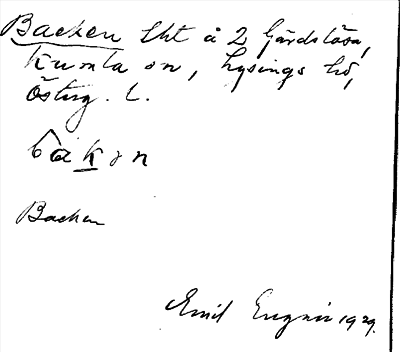 Backen lht å 2 Gärdslösa,
Kumla sn, Lysings hd,
Östg. L.
bàkən
Backen
Emil Engnér 1929.